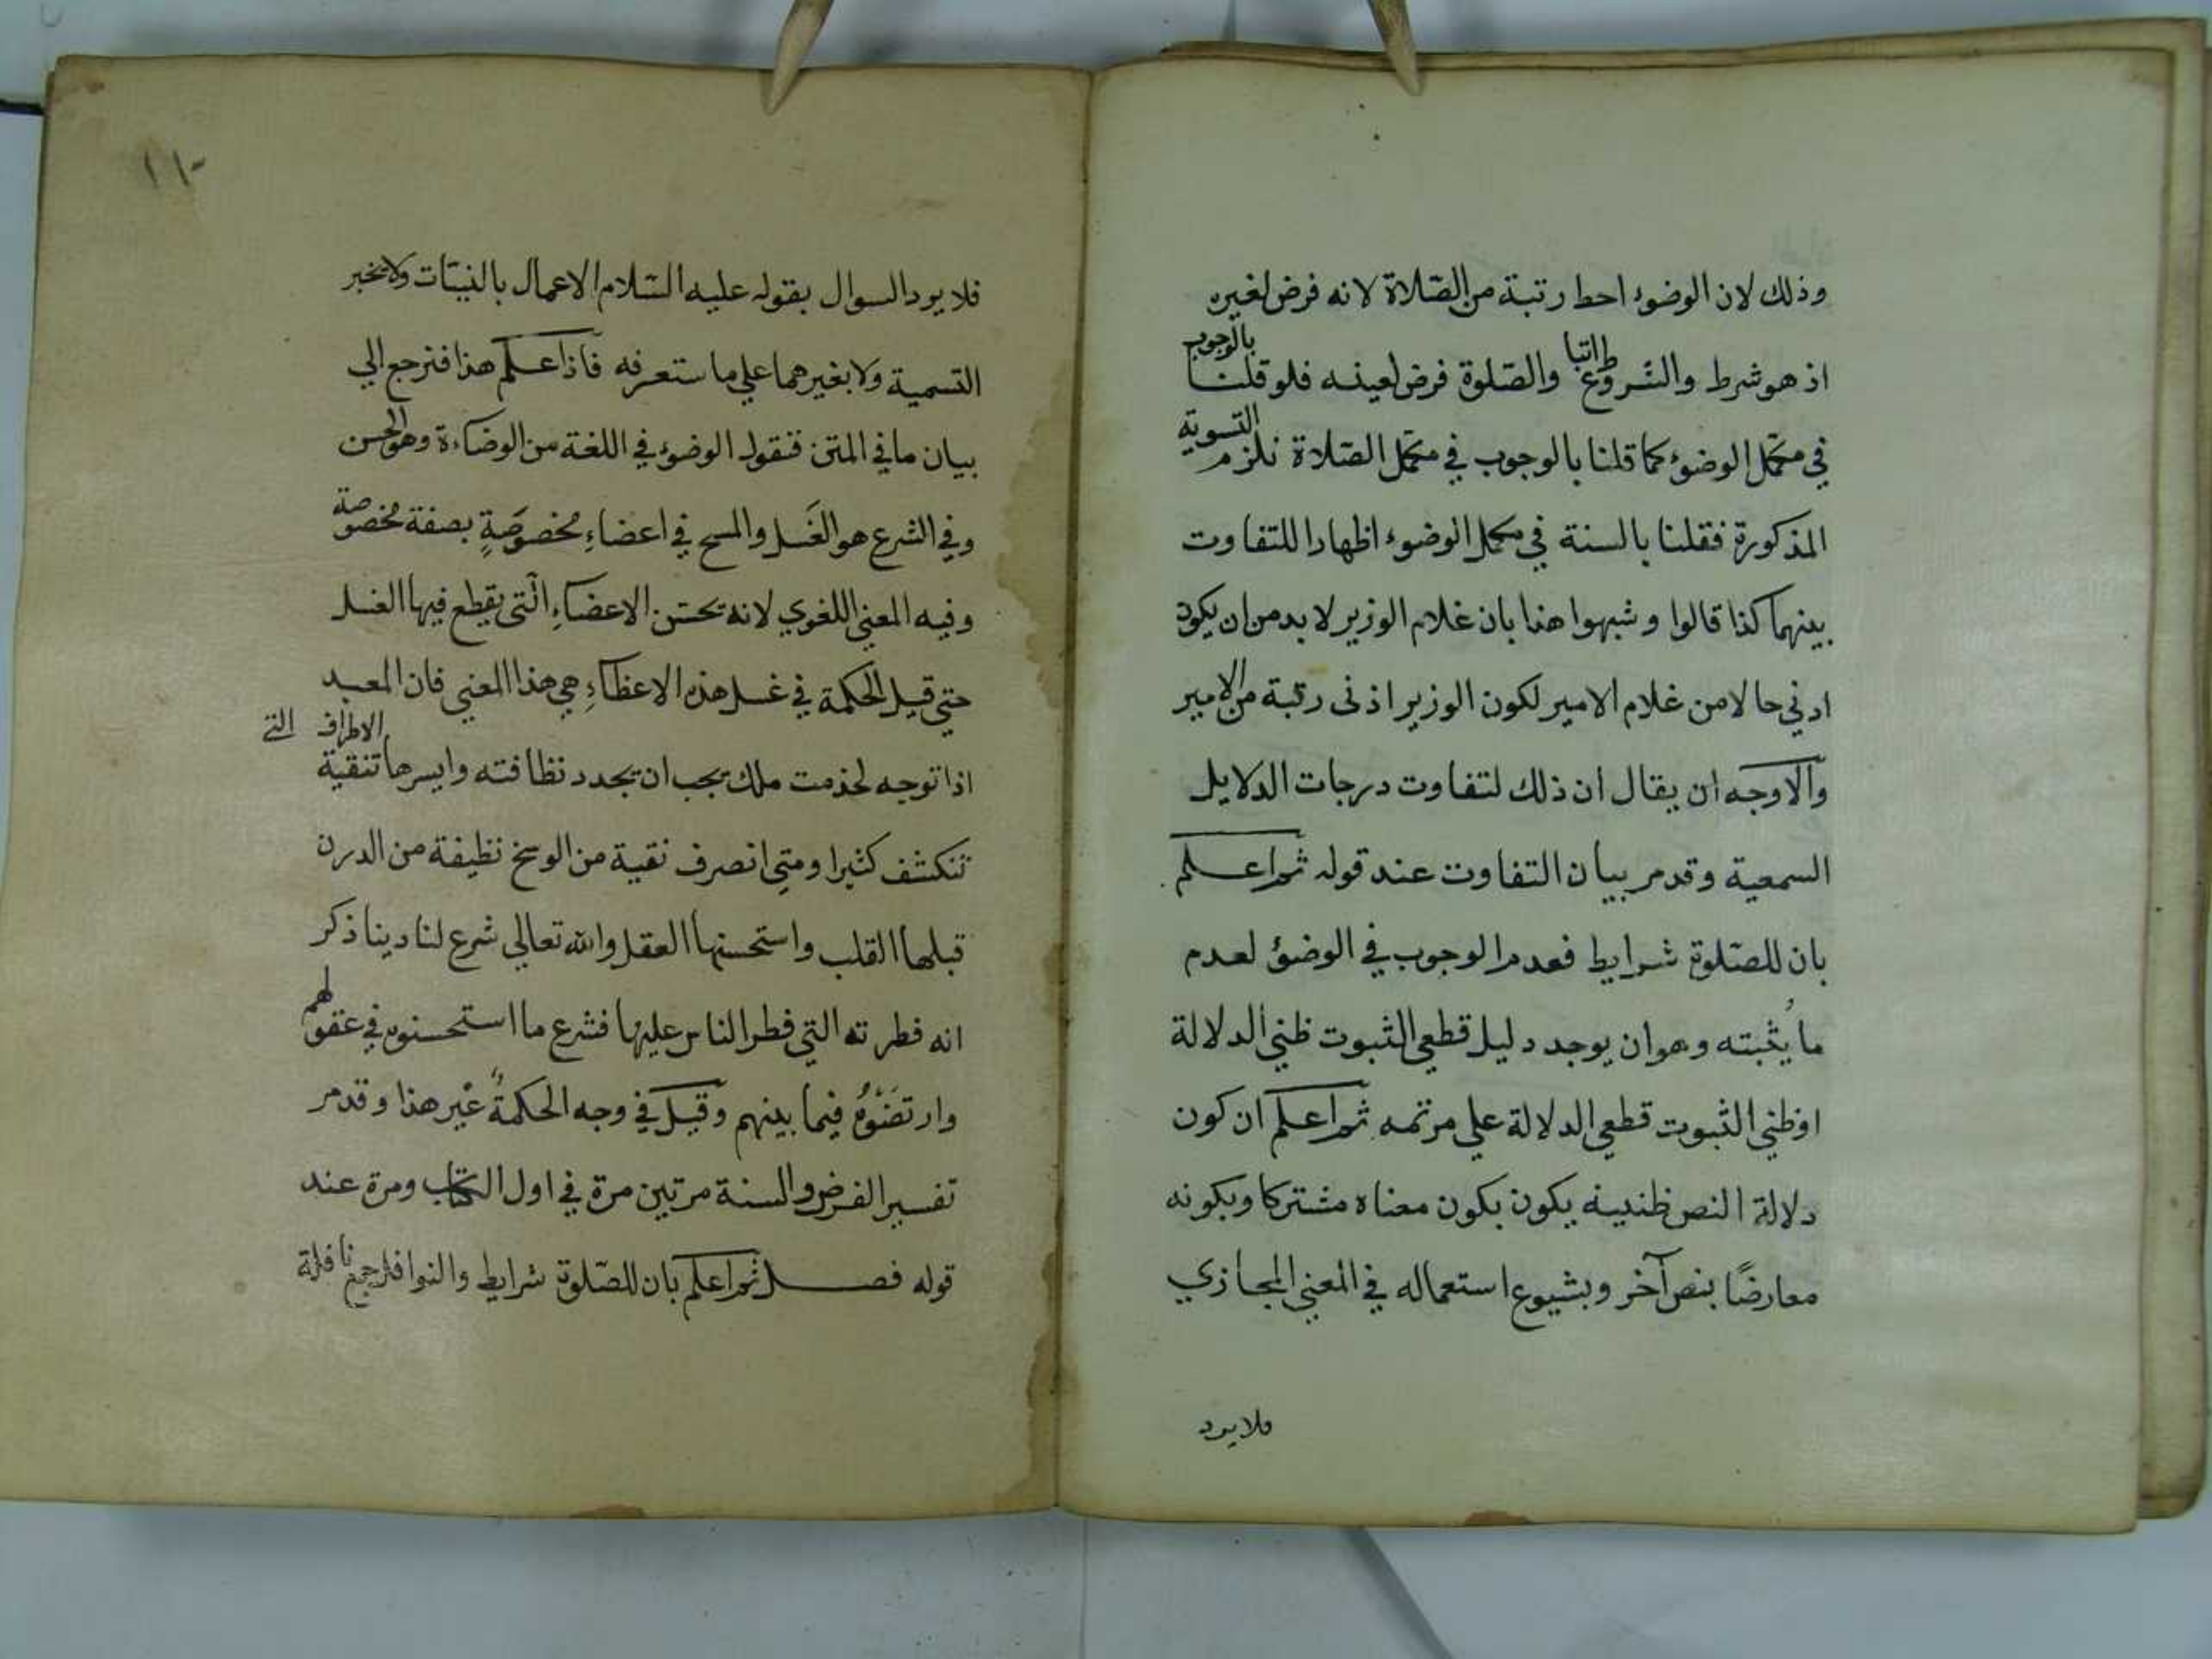 وذلك لان الوضوء احط رتبة من الصّلاة لانه فرض لغيره
اذ هو شرط والشّروط اتباع والصّلوة فرض لعينه فلو قلنا بالوجوب
في مكمّل الوضوء كما قلنا بالوجوب في مكمّل الصّلاة نلزم التسوية
المذكورة فقلنا بالسنة في مكمل الوضوء اظهارا للتفاوت
بينهما كذا قالوا وشبهوا هذا بان غلام الوزير لا بد من ان يكون
ادني حالا من غلام الامير لكون الوزير اذنى رتبة من الامير
والاوجه ان يقال ان ذلك لتفاوت درجات الدلايل
السمعية وقد مر بيان التفاوت عند قوله ثم اعلم
بان للصّلوة شرايط فعدم الوجوب في الوضوُ لعدم
ما يُثبته وهو ان يوجد دليل قطعي الثبوت ظني الدلالة
اوظني الثبوت قطعي الدلالة علي مر تمه ثم اعلم ان كون
دلالة النص ظنيه يكون بكون معناه مشتركا وبكونه
معارضًا بنص آخر وبشيوع استعماله في المعني المجازي
فلا يرد
١١٠
فلا يرد السوال بقوله عليه السّلام الاعمال بالنيّات ولا بخبر
التسمية ولا بغيرهما علي ما ستعرفه فاذا علم هذا فنرجع الي
بيان ما في المتن فنقول الوضوُ في اللغة من الوضاءة وهو الحسن
وفي الشرع هو الغَسل والمسح في اعضاءِ مخصوصَةٍ بصفة مخصوصة
وفيه المعني اللغوي لانه تحسّن الاعضاءِ الّتى يقطع فيها الغسل
حتي قيل الحكمة في غسل هذه الاعظاءِ هي هذا المعني فان العبد
اذا توجه لخذمت ملك يجب ان يجدد نظافته وايسرها تنقية الاطراف التي
تنكشف كثيرا ومتي انصرف نقية من الوسخ نظيفة من الدرن
قبلها القلب واستحسنها العقل والله تعالي شرع لنا دينا ذكر
انه فطرته التي فطر الناس عليها فشرع ما استحسنوه في عقولهم
وارتضَوْهُ فيما بينهم وقيل في وجه الحكمةُ غير هذا وقد مر
تفسير الفرض والسنة مرتين مرة في اول الكتاب ومرة عند
قوله فصل ثم اعلم بان للصّلوة شرايط والنوافل جمع نافلة